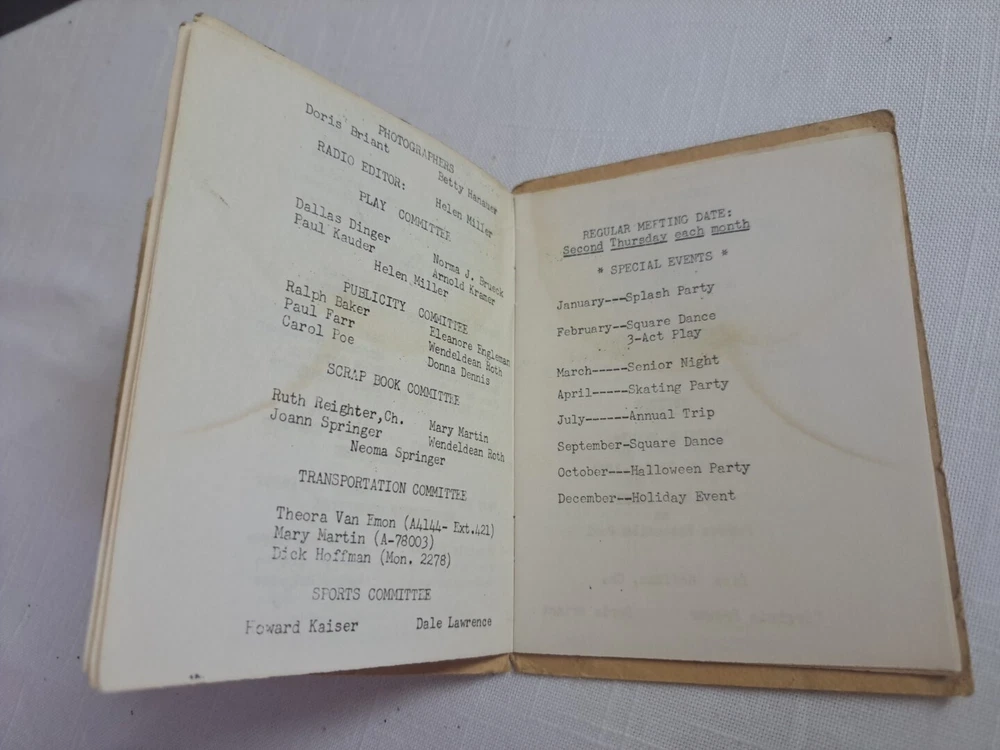 PHOTOGRAPHERS
Doris Briant Betty Hanauer
RADIO EDITOR: Helen Miller
PLAY COMMITTEE
Dallas Dinger Norma J. Brueck
Paul Kauder Arnold Kramer
Helen Miller
PUBLICITY COMMITTEE
Ralph Baker Eleanore Engleman
Paul Farr Wendeldean Roth
Carol Poe Donna Dennis
SCRAP BOOK COMMITTEE
Ruth Reighter,Ch. Mary Martin
Joann Springer Wendeldean Roth
Neoma Springer
TRANSPORTATION COMMITTEE
Theora Van Emon (A4144- Ext.421)
Mary Martin (A-78003)
Dick Hoffman (Mon. 2278)
SPORTS COMMITTEE
Howard Kaiser Dale Lawrence
REGULAR MEETING DATE:
Second Thursday each month
* SPECIAL EVENTS *
January---Splash Party
February--Square Dance
3-Act Play
March-----Senior Night
April-----Skating Party
July------Annual Trip
September-Square Dance
October---Halloween Party
December--Holiday Event